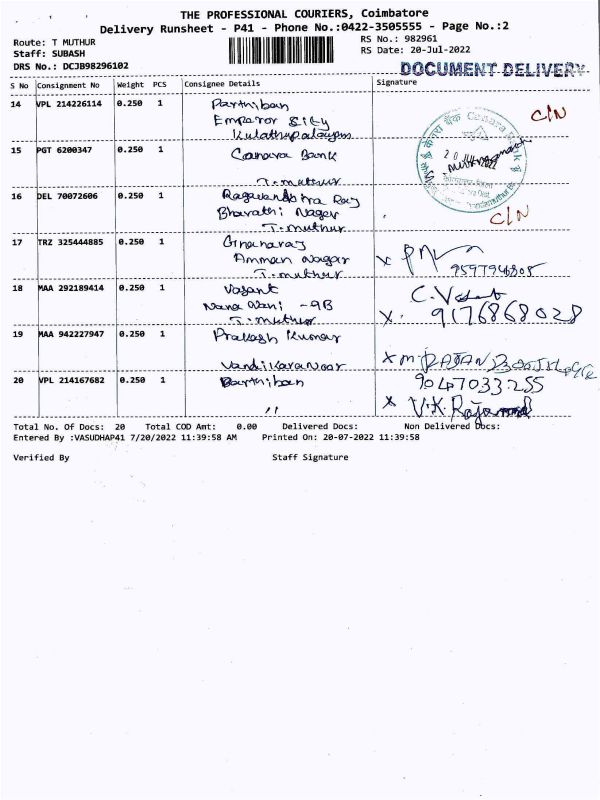 THE PROFESSIONAL COURIERS, Coimbatore
Delivery Runsheet - P41 - Phone No.:0422-3505555 - Page No.:2
Route: T MUTHUR
RS No.: 982961
Staff: SUBASH
RS Date: 20-Jul-2022
DRS No.: DCJB98296102
DOCUMENT DELIVERY
S No Consignment No Weight PCS Consignee Details Signature
14 VPL 214226114 0.250 1 Parthiban C/N
Emperor City
Kulathupalayam
15 PGT 6200347 0.250 1 Canara Bank
T. muthur
16 DEL 70072606 0.250 1 Ragavendhra Raj
Bharathi Nagar C/N
T. muthur
17 TRZ 325444885 0.250 1 Gnanaraj
Amman Nagar x
T. muthur 9597946805
18 MAA 292189414 0.250 1 Vasant C.
Nana Vani - 9B x. 9176868028
T. muthur
19 MAA 942227947 0.250 1 Prakash Kumar
Vandikaranoor x m RAJAN
20 VPL 214167682 0.250 1 Parthiban 9047033255
" x V.K.
Total No. Of Docs: 20 Total COD Amt: 0.00 Delivered Docs: Non Delivered Docs:
Entered By :VASUDHAP41 7/20/2022 11:39:58 AM Printed On: 20-07-2022 11:39:58
Verified By Staff Signature